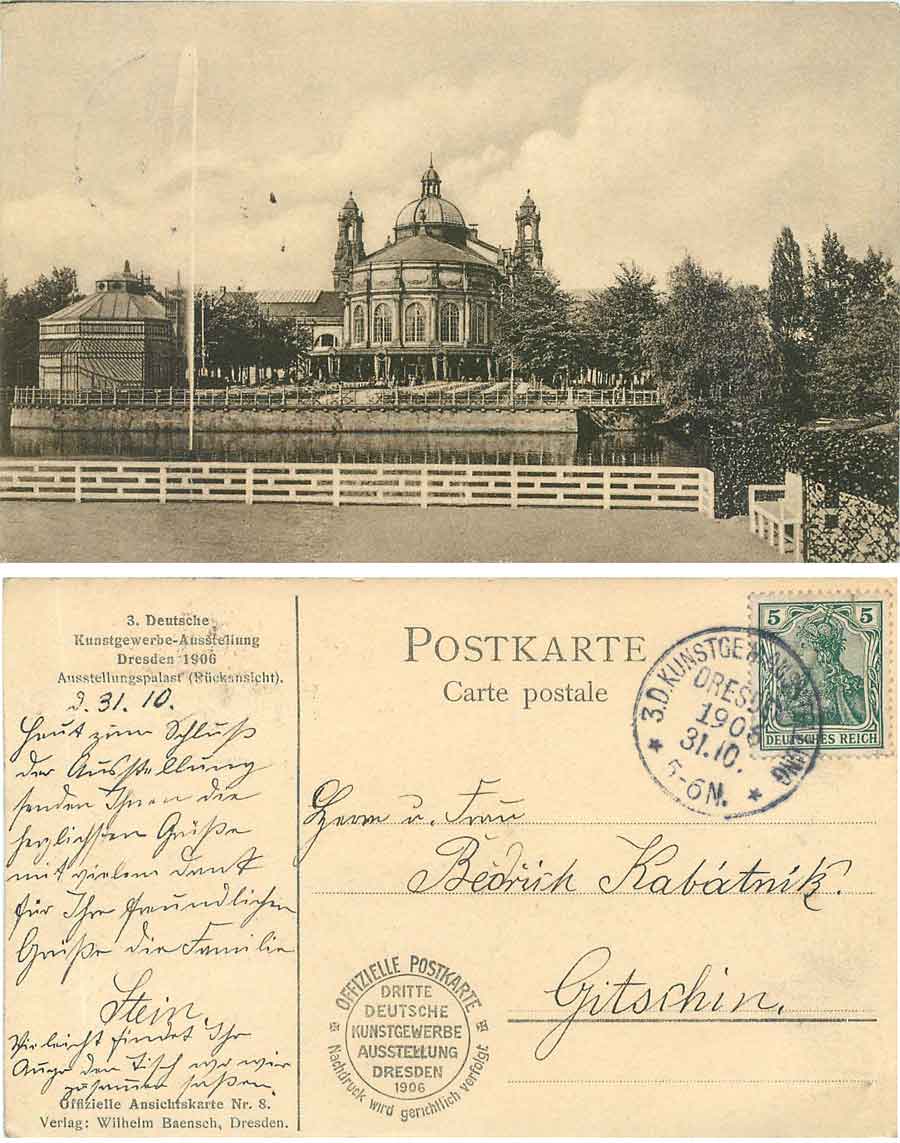 3. Deutsche
Kunstgewerbe-Ausstellung
Dresden 1906
Ausstellungspalast (Rückansicht).
d. 31. 10.
Heut zum Schluß
der Ausstellung
senden Ihnen die
herzlichsten Grüße
mit vielem Dank
für Ihre freundlichen
Grüße die Familie
Stein.
Vielleicht findet Ihr
Auge den Tisch wo wir
zusammen saßen.
Offizielle Ansichtskarte Nr. 8.
Verlag: Wilhelm Baensch, Dresden.
POSTKARTE
Carte postale
3.D.KUNSTGEWERBE
DRESDEN
1906
31.10.
5-6N.
5 5
DEUTSCHES REICH
Herrn u. Frau
Bedřich Kabátník.
Gitschin.
OFFIZIELLE POSTKARTE
DRITTE
DEUTSCHE
KUNSTGEWERBE
AUSSTELLUNG
DRESDEN
1906
Nachdruck wird gerichtlich verfolgt